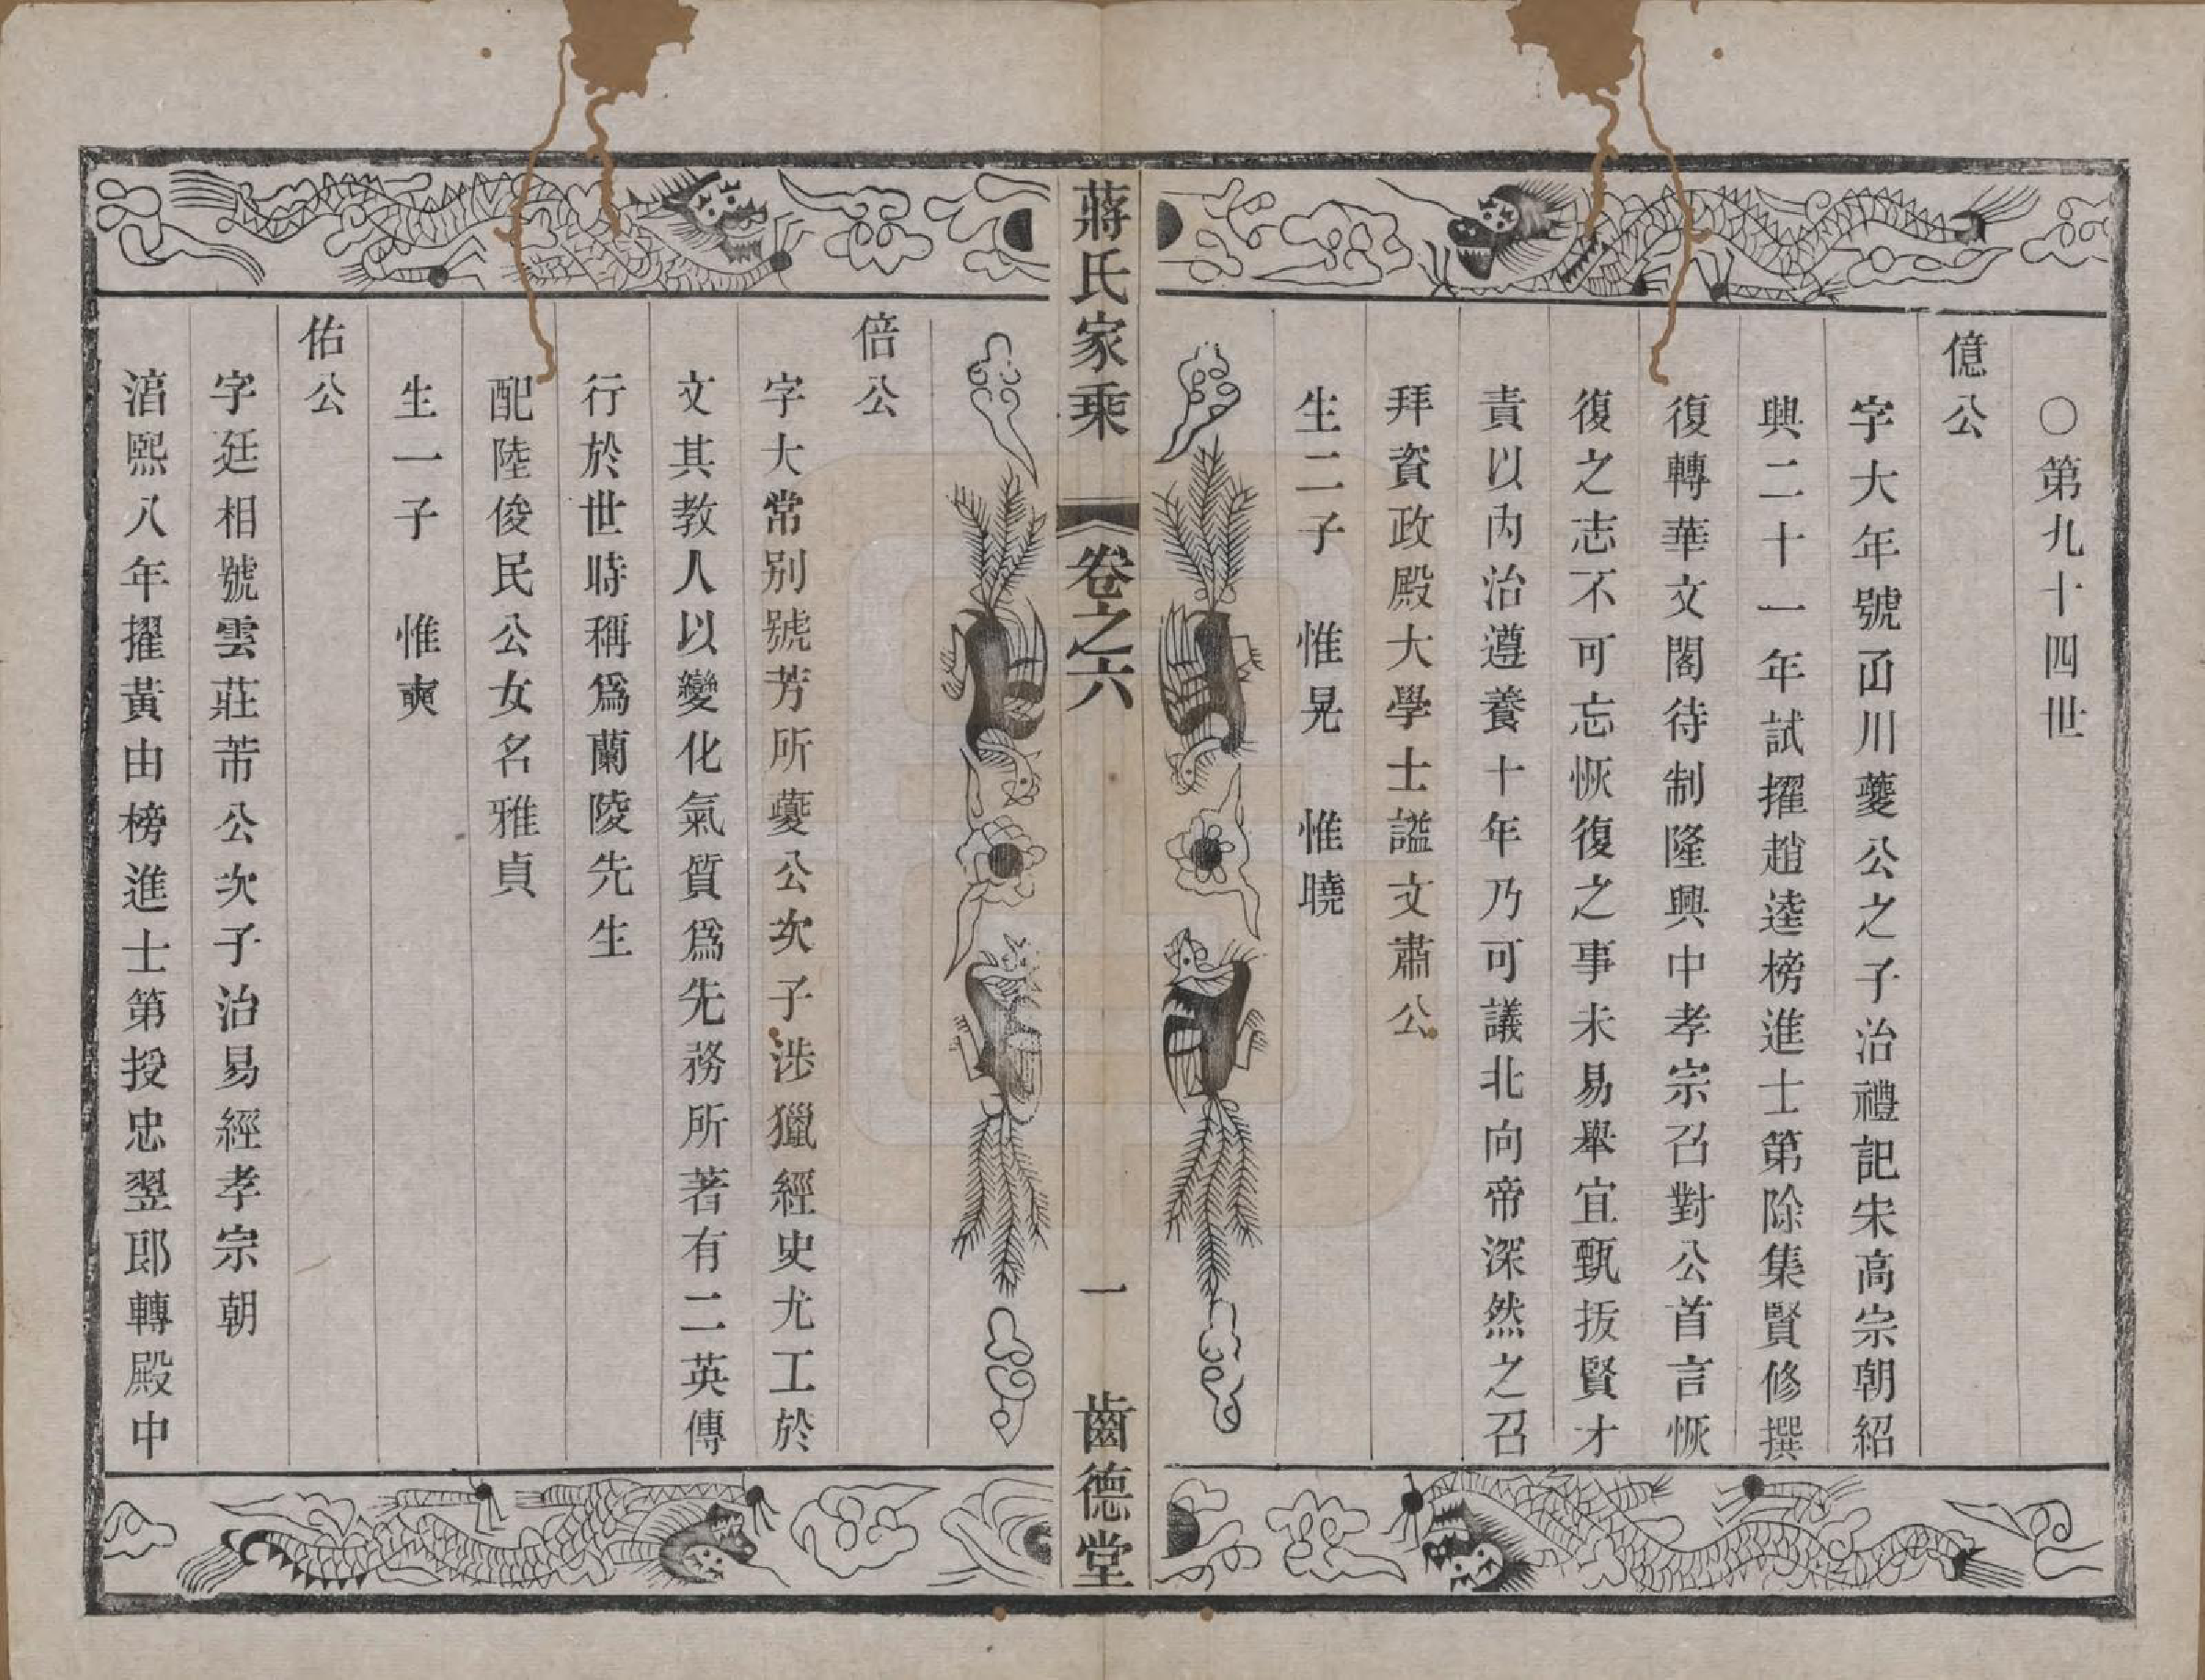 ○第九十四世
億公
字大年號𠚖川夔公之子治禮記宋高宗朝紹
興二十一年試擢趙逵榜進士第除集賢修撰
復轉華文閣待制隆興中孝宗召對公首言恢
復之志不可忘恢復之事未易舉宜甄拔賢才
責以內治遵養十年乃可議北向帝深然之召
拜資政殿大學士謚文肅公
生二子　惟晃　惟曉
蔣氏家乘　卷之六　一　齒德堂
倍公
字大常别號芳所夔公次子涉獵經史尤工於
文其教人以變化氣質爲先務所著有二英傳
行於世時稱爲蘭陵先生
配陸俊民公女名雅貞
生一子　惟奭
佑公
字廷相號雲莊芾公次子治易經孝宗朝
淳熙八年擢黃由榜進士第授忠翌郎轉殿中